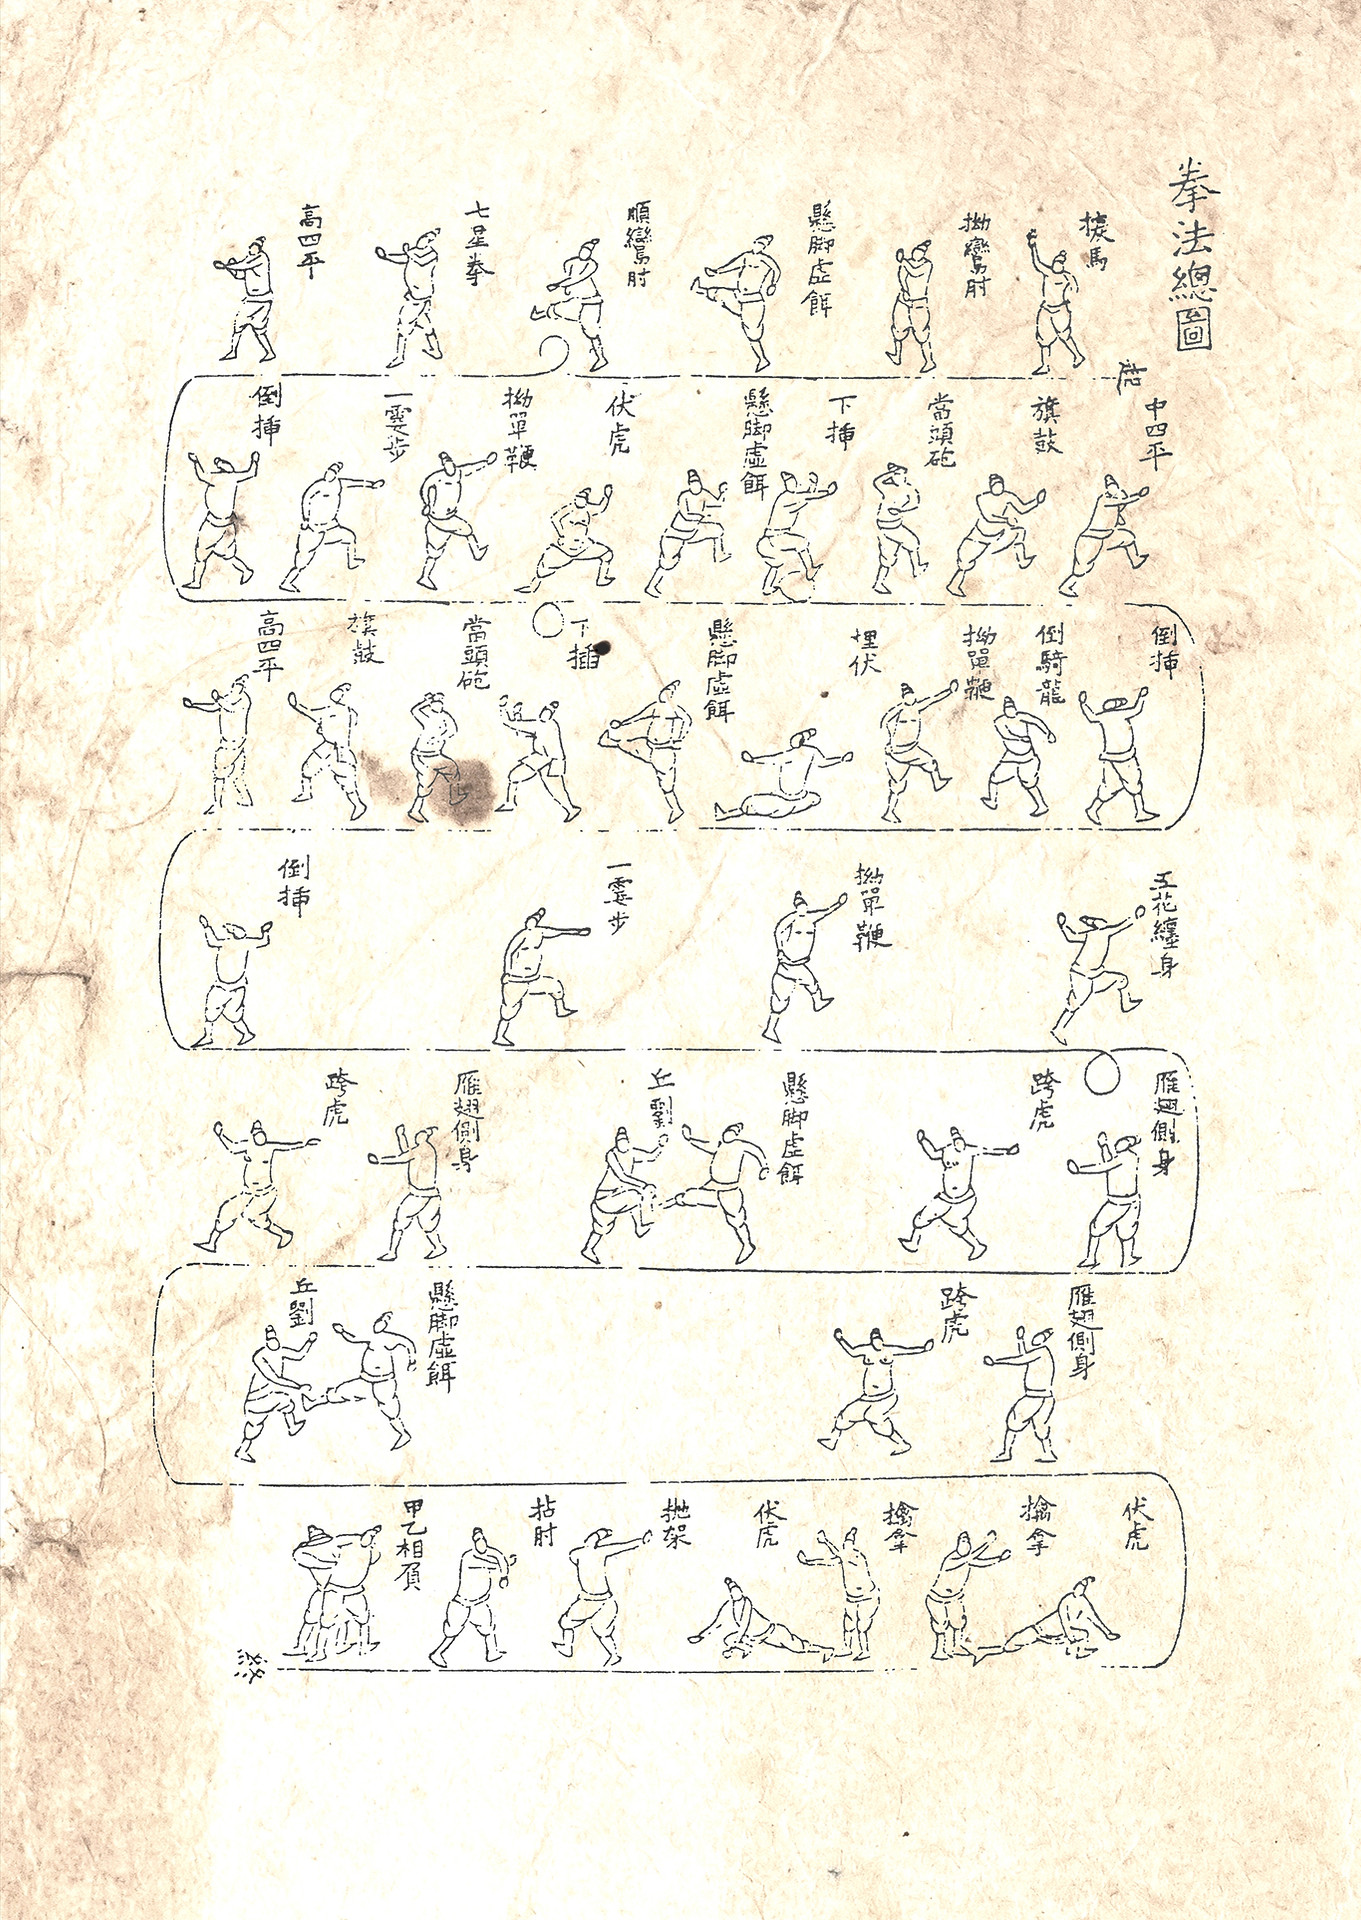 拳法總圖
探馬
拗鸞肘
懸脚虛餌
順鸞肘
七星拳
高四平
中四平
旗鼓
當頭砲
下揷
懸脚虛餌
伏虎
拗單鞭
一霎步
倒揷
倒揷
倒騎龍
拗單鞭
埋伏
懸脚虛餌
下插
當頭砲
旗鼓
高四平
五花纏身
拗單鞭
一霎步
倒揷
雁翅側身
跨虎
懸脚虛餌
丘劉
雁翅側身
跨虎
雁翅側身
跨虎
懸脚虛餌
丘劉
伏虎
擒拿
擒拿
伏虎
抛架
拈肘
甲乙相負
終